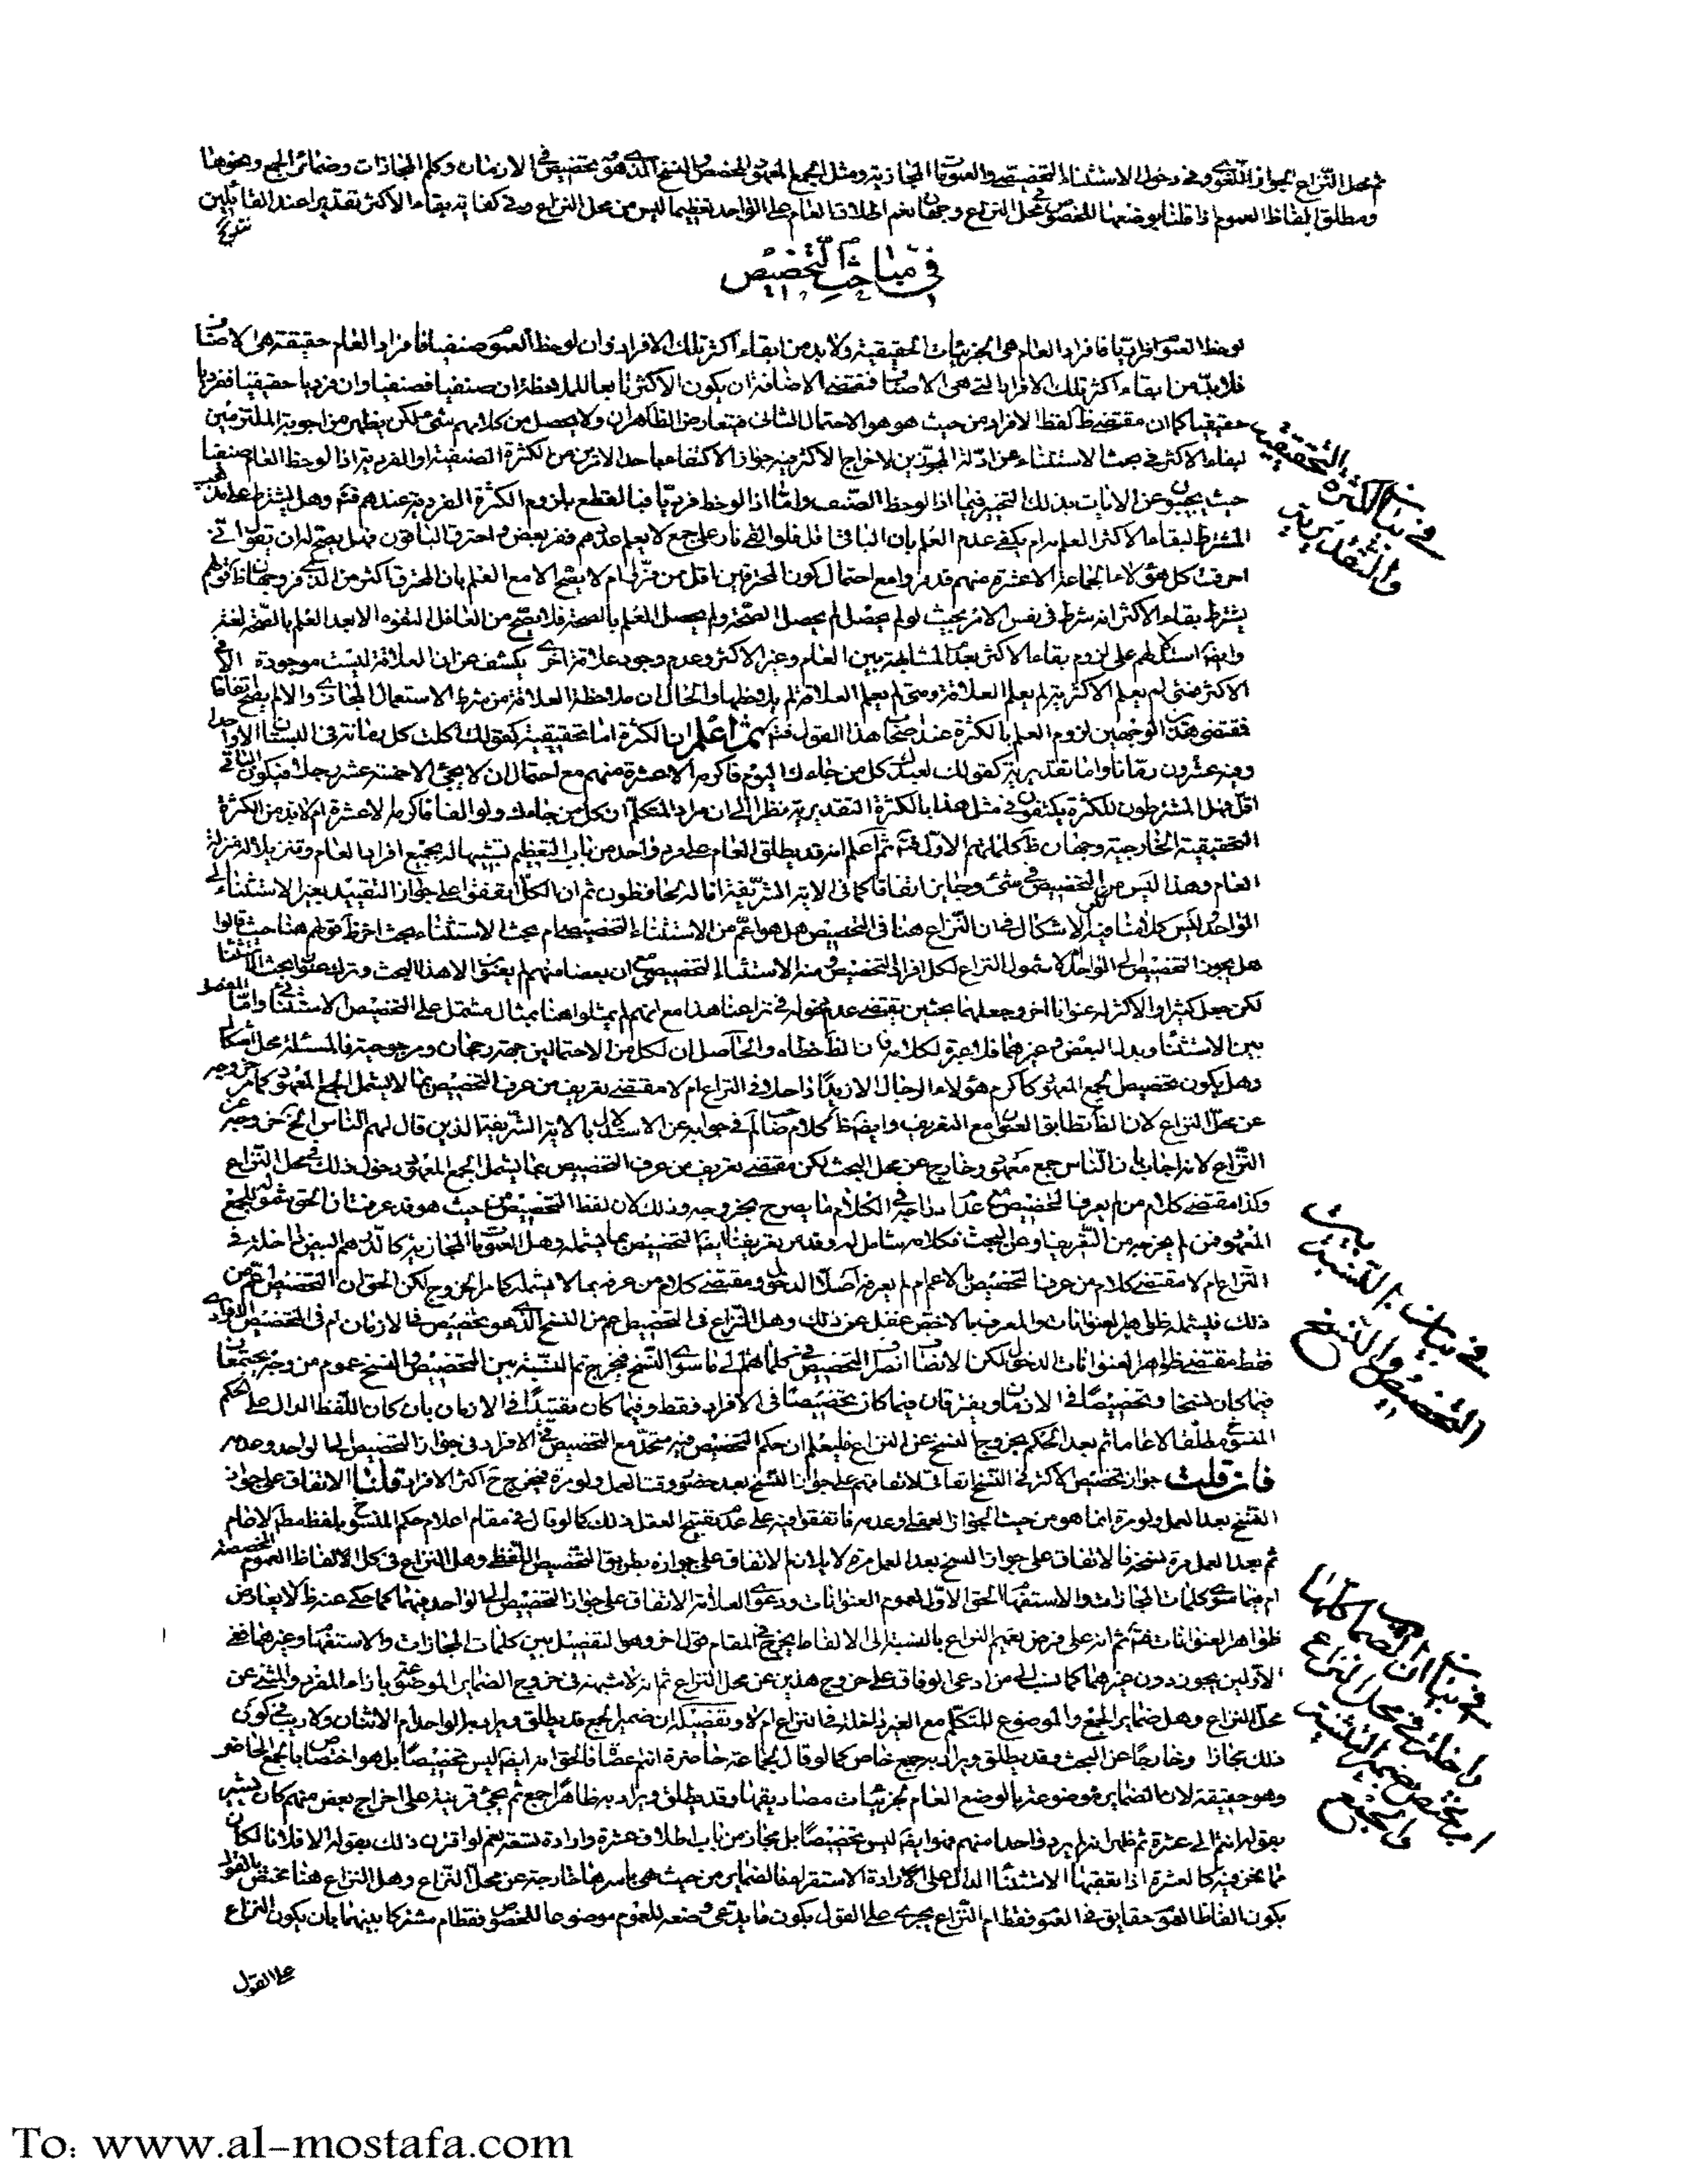 ثم محل النزاع الجواز اللغوى وفى دخول الاستثناء التخصيصى والعمومات المجازية ومثل الجمع المعهود المخصص والنسخ الذى هو تخصيص فى الازمان وكلم المجازات وضمائر الجمع ونحوها
ومطلق الفاظ العموم اذا قلنا بوضعها للخصوص فى محل النزاع وجهان نعم اطلاق العام على الواحد تعظيما ليس من محل النزاع وفى كفاية بقاء الاكثر تقديرا عند القائلين
فى مباحث التخصيص
لوحظ العموم افراديا فافراد العام هى الجزئيات الحقيقية ولا بد من ابقاء اكثر تلك الافراد وان لوحظ العموم صنفيا فافراد العام حقيقة هى الاصناف
فلا بد من ابقاء اكثر تلك الافراد التى هى الاصناف فمقتضى الاضافة ان يكون الاكثر تابعا للملاحظة ان صنفيا فصنفيا وان فرديا حقيقيا ففرديا
حقيقيا كما ان مقتضى لفظ الافراد من حيث هو هو الاحتمال الثانى فتعارض الظاهران ولا يحصل من كلامهم شئ لكن يظهر من اجوبة الملتزمين
لبقاء الاكثر فى مبحث الاستثناء عن ادلة المجوزين لاخراج الاكثر فيه جواز الاكتفاء باحد الامرين من الكثرة الصنفية او الفردية اذا لوحظ العام صنفيا
حيث يجيبون عن الايات بذلك التخيير فيما اذا لوحظ الصنف واما اذا لوحظ فرديا فبالقطع يلزم الكثرة الفردية عندهم فتم وهل يشترط على مذهب
المشترط لبقاء الاكثر العلم به ام يكفى عدم العلم بان الباقى اقل فلو القى نار على جمع لا يعلم عددهم ففر بعض واحترق الباقون فهل يصح له ان يقول انى
احرقت كل هؤلاء الجماعة الا عشرة منهم قد فروا مع احتمال كون المحترقين اقل من فر ام لا يصح الا مع العلم بان المحترق اكثر من الذى فر وجهان ظاهر قولهم
يشترط بقاء الاكثر انه شرط فى نفس الامر بحيث لو لم يحصل لم يحصل الصحة ولم يحصل العلم بالصحة فلا يصح من العاقل التفوه الا بعد العلم بالصحة
وايضا استدلالهم على لزوم بقاء الاكثر بعدم المشابهة بين العام وغير الاكثر وعدم وجود علاقة اخرى يكشف عن ان العلاقة ليست موجودة الا فى
الاكثر فمتى لم يعلم الاكثرية لم يعلم العلاقة ومتى لم يعلم العلاقة لم يلاحظها والحال ان ملاحظة العلاقة من شرط الاستعمال المجازى والا لم يصح اتفاقا
فمقتضى هذين الوجهين لزوم العلم بالكثرة عند اصحاب هذا القول فتم ثم اعلم ان الكثرة اما تحقيقية كقولك اكلت كل رمانة فى البستان الا واحدا
وفيه عشرون رمانا واما تقديرية كقولك لعبدك كل من جاءك اليوم فاكرمه الا عشرة منهم مع احتمال ان لا يجئ الا خمسة عشر رجلا فيكون الباقى
اقل فهل المشترطون للكثرة يكتفون فى مثل هذا بالكثرة التقديرية نظرا الى ان مراد المتكلم ان كل من جاءك ولو الفا فاكرمه الا عشرة ام لا بد من الكثرة
التحقيقية الخارجية وجهان ظ كلماتهم الاول فتم ثم اعلم انه قد يطلق العام على فرد واحد من باب التعظيم تشبيها له بجميع افراد العام وتنزيلا له منزلة
العام وهذا ليس من التخصيص فى شئ وجايز اتفاقا كما فى الاية الشريفة انا له لحافظون ثم ان الكل اتفقوا على جواز التقييد بغير الاستثناء الى
الواحد وليس كلامنا فيه لكن الاشكال فى ان النزاع هنا فى التخصيص هل هو اعم من الاستثناء التخصيصى ام مبحث الاستثناء مبحث اخر ظ قولهم هنا حيث قالوا
هل يجوز التخصيص الى الواحد ام لا شمول النزاع لكل افراد التخصيص ومنه الاستثناء التخصيصى مع ان بعضا منهم لم يعنون الا هذا البحث وترك عنوان بحث الاستثناء
لكن جعل كثير او الاكثر له عنوانا اخر وجعلهما بحثين يقتضى عدم دخوله فى نزاعنا هذا مع انهم لم يمثلوا هنا بمثال مشتمل على التخصيص الاستثنائى واما
بين الاستثناء وبدل البعض وغيرهما فلا عبرة لكلامه فان الظ خطاه والحاصل ان لكل من الاحتمالين جهة رجحان ومرجوحية فالمسئلة محل اشكال
وهل يكون تخصيص الجمع المعهود كاكرم هؤلاء الرجال الا زيدا داخلا فى النزاع ام لا مقتضى تعريف من عرف التخصيص بما لا يشمل الجمع المعهود كما مر خروجه
عن محل النزاع لان الظ تطابق العنوان مع التعريف وايضا ظ كلام صاحب لم فى جوابه عن الاستدلال بالاية الشريفة الذين قال لهم الناس الخ خروجه عن
النزاع لانه اجاب بان الناس جمع معهود وخارج عن محل البحث لكن مقتضى تعريف من عرف التخصيص بما يشمل الجمع المعهود دخول ذلك فى محل النزاع
وكذا مقتضى كلام من لم يعرف التخصيص مع عدم فى الكلام ما يصرح بخروجه وذلك لان لفظ التخصيص من حيث هو قد عرفت ان الحق شموله للجمع
المعهود فمن لم يخرجه من التعريف وعن البحث فكلامه شامل له وقد مر تعريفنا ايضا التخصيص بما يشمله وهل العمومات المجازية كالدرهم البيض داخلة فى
النزاع ام لا مقتضى كلام من عرف التخصيص بالاعم او لم يعرفه اصلا الدخول ومقتضى كلام من عرفه بما لا يشمله كما مر الخروج لكن الحق ان التخصيص اعم من
ذلك فليشمله ظواهر العنوانات والمعرف بالاخص غفل عن ذلك وهل النزاع فى التخصيص اعم من النسخ الذى هو تخصيص فى الازمان ام فى التخصيص الافرادى
فقط مقتضى ظواهر العنوانات الدخول لكن الانصاف انصراف التخصيص فى كلماتهم الى ما سوى النسخ فيخرج ثم النسبة بين التخصيص والنسخ عموم من وجه يجتمعان
فيما كان نسخا وتخصيصا فى الازمان ويفترقان فيما كان تخصيصا فى الافراد فقط وفيما كان تقييدا فى الازمان بان كان اللفظ الدال على الحكم
المنسوخ مطلقا لا عاما ثم بعد الحكم بخروج النسخ عن النزاع فليعلم ان حكم التخصيص فيه متحد مع التخصيص فى الافراد فى جواز التخصيص الى الواحد وعدمه
فان قلت جواز تخصيص الاكثر فى النسخ اتفاقى لاتفاقهم على جواز النسخ بعد حضور وقت العمل ولو مرة فيخرج ح اكثر الافراد قلنا الاتفاق على جواز
النسخ بعد العمل ولو مرة انما هو من حيث الجواز العقلى وعدمه فاتفقوا فيه على عدم تقبيح العقل ذلك كما لو قال فى مقام اعلام حكم المنسوخ بلفظ مطلق لا عام
ثم بعد العمل مرة نسخه فالاتفاق على جواز النسخ بعد العمل مرة لا يلازم الاتفاق على جوازه بطريق التخصيص اللفظى وهل النزاع فى كل الالفاظ العموم المخصصة
ام فيما سوى كلمات المجازات والاستفهام الحق الاول لعموم العنوانات ودعوى العلامة الاتفاق على جواز التخصيص الى الواحد فيهما كما حكى عنه ظ لا يعارض
ظواهر العنوانات فتم ثم انه على فرض تعميم النزاع بالنسبة الى الالفاظ يخرج فى المقام قول اخر وهو التفصيل بين كلمات المجازات والاستفهام وغيرهما ففى
الاولين يجوز دون غيرهما كما نسب الى من ادعى الوفاق على خروج هذين عن محل النزاع ثم انه لا شبهة فى خروج الضماير الموضوعة بازاء المفرد والتثنية عن
محل النزاع وهل ضماير الجمع والموضوع للمتكلم مع الغير داخلة فى النزاع ام لا وتفصيله ان ضمير الجمع قد يطلق ويراد به الواحد ام الاثنان ولا ريب فى كون
ذلك مجازا وخارجا عن البحث وقد يطلق ويراد به جمع خاص كما لو قال لجماعة حاضرة انتم فالحق انه ايضا ليس تخصيصا بل هو اختصاص بالجمع الحاضر
وهو حقيقة لان الضماير موضوعة بالوضع العام لجزئيات مصاديقها وقد يطلق ويراد به ظاهرا جمع ثم يجئ قرينة على اخراج بعض منهم كان يشير
بقوله انتم الى عشرة ثم ظهر انه لم يرد واحدا منهم فهو ايضا ليس تخصيصا بل مجاز من باب اطلاق عشرة وارادة تسعة نعم لو اقترن ذلك بقوله الا فلانا لكان
مما نحن فيه كالعشرة اذا تعقبها الاستثناء الدال على ارادة الاستغراق فالضماير من حيث هى باسرها خارجة عن محل النزاع وهل النزاع هنا مختص بالقول
بكون الفاظ العموم حقايق فى العموم فقط ام النزاع يجرى على القول بكون ما يدعى وضعه للعموم موضوعا للخصوص فقط ام مشتركا بينهما بان يكون النزاع
على القول
فى بيان الكثرة التحقيقية
والتقديرية
فى بيان النسبة بين
التخصيص والنسخ
فى بيان ان الضماير كلها
داخلة فى محل النزاع
ام يختص بضمير التثنية
والجمع
To: www.al-mostafa.com